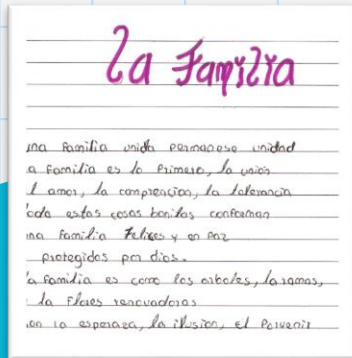 La Familia
una familia unida permanese unidad
a familia es lo Primero, la unión
l amor, la comprencion, la tolerancia
oda estas cosas bonitas conforman
una familia Felices y en paz
protegidos por dios.
a familia es como los arboles, la ramas,
la Flores renovadoras
son la esperaza, la ilusion, el Porvenir